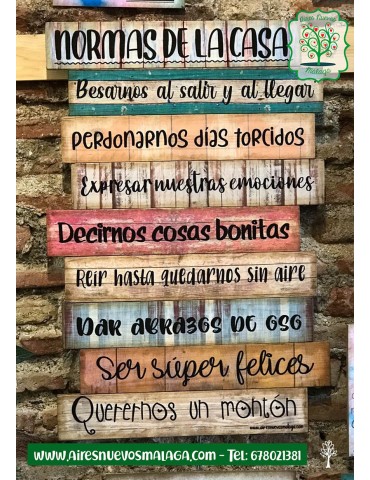 Aires Nuevos
Málaga
NORMAS DE LA CASA
Besarnos al salir y al llegar
Perdonarnos días torcidos
Expresar nuestras emociones
Decirnos cosas bonitas
Reír hasta quedarnos sin aire
DAR ABRAZOS DE OSO
Ser súper felices
Querernos un montón
www.airesnuevosmalaga.com
www.AiresNuevosMalaga.com - Tel: 678021381